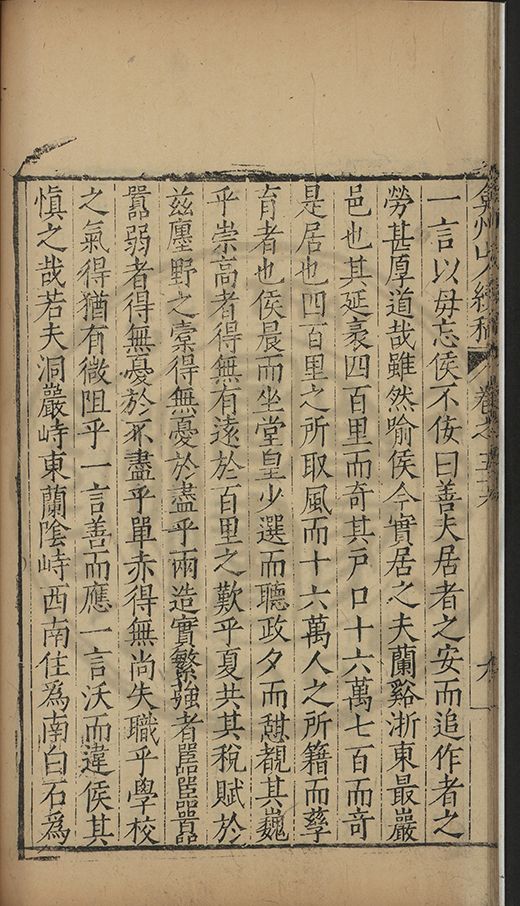 弇州山人續稿 卷之五十六 九
一言以毋忘侯不佞曰善夫居者之安而追作者之
勞甚厚道哉雖然喻侯今實居之夫蘭谿浙東最巖
邑也其延袤四百里而奇其戶口十六萬七百而奇
是居也四百里之所取風而十六萬人之所籍而孳
育者也侯晨而坐堂皇少選而聽政夕而憇覩其巍
乎崇高者得無有遠於百里之歎乎夏共其稅賦於
茲廛野之橐得無憂於盡乎兩造實繁強者嚚嚚囂
囂弱者得無憂於不盡乎單赤得無尚失職乎學校
之氣得猶有微阻乎一言善而應一言沃而違侯其
愼之哉若夫洞巖峙東蘭陰峙西南住為南白石為